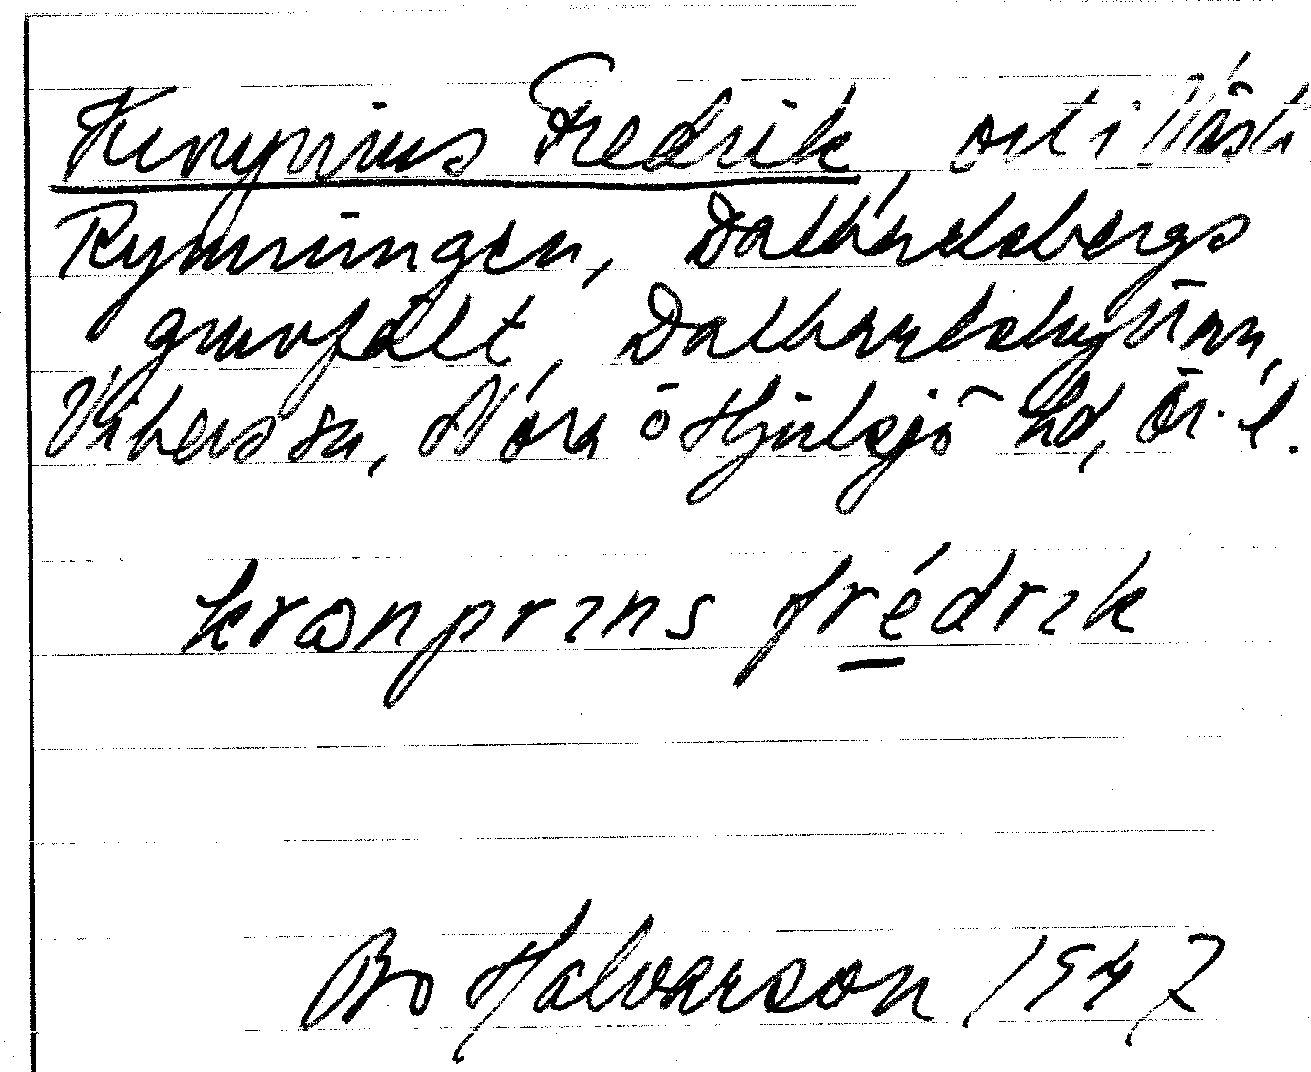 Kronprins Fredrik, ort i Västra
Rymningen, Dalkarlsbergs
gruvfält, Dalkarlshyttan,
Vikers sn, Nora o Hjulsjö hd, Ör. l.
kronprins fredrik
Bo Halvarson 1947